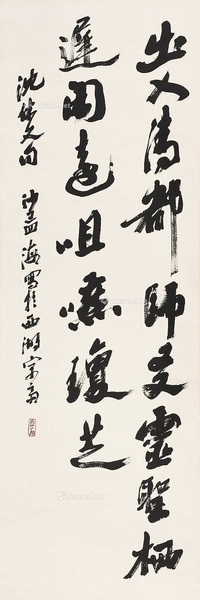 出入清都師友靈聖栖
遲閒遠咀嚼瓊芝
沈休文句 沙孟海寫於西湖寓齋